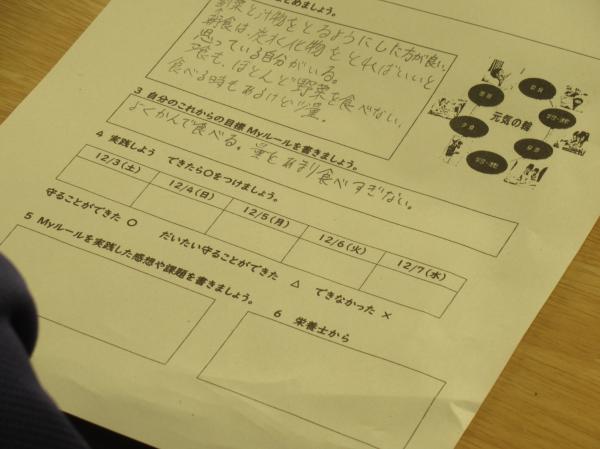 とめましょう。
野菜と汁物をとるようにした方が良い。
朝食は炭水化物をとればいいと
思っている自分がいる。
夕食も、ほとんど野菜を食べない。
食べる時もあるけど少量。
元気の輪
3 自分のこれからの目標 Myルールを書きましょう。
よくかんで食べる。量をあまり食べすぎない。
4 実践しよう できたら○をつけましょう。
12/3(土) 12/4(日) 12/5(月) 12/6(火) 12/7(水)
守ることができた ○ だいたい守ることができた △ できなかった ×
5 Myルールを実践した感想や課題を書きましょう。
6 栄養士から